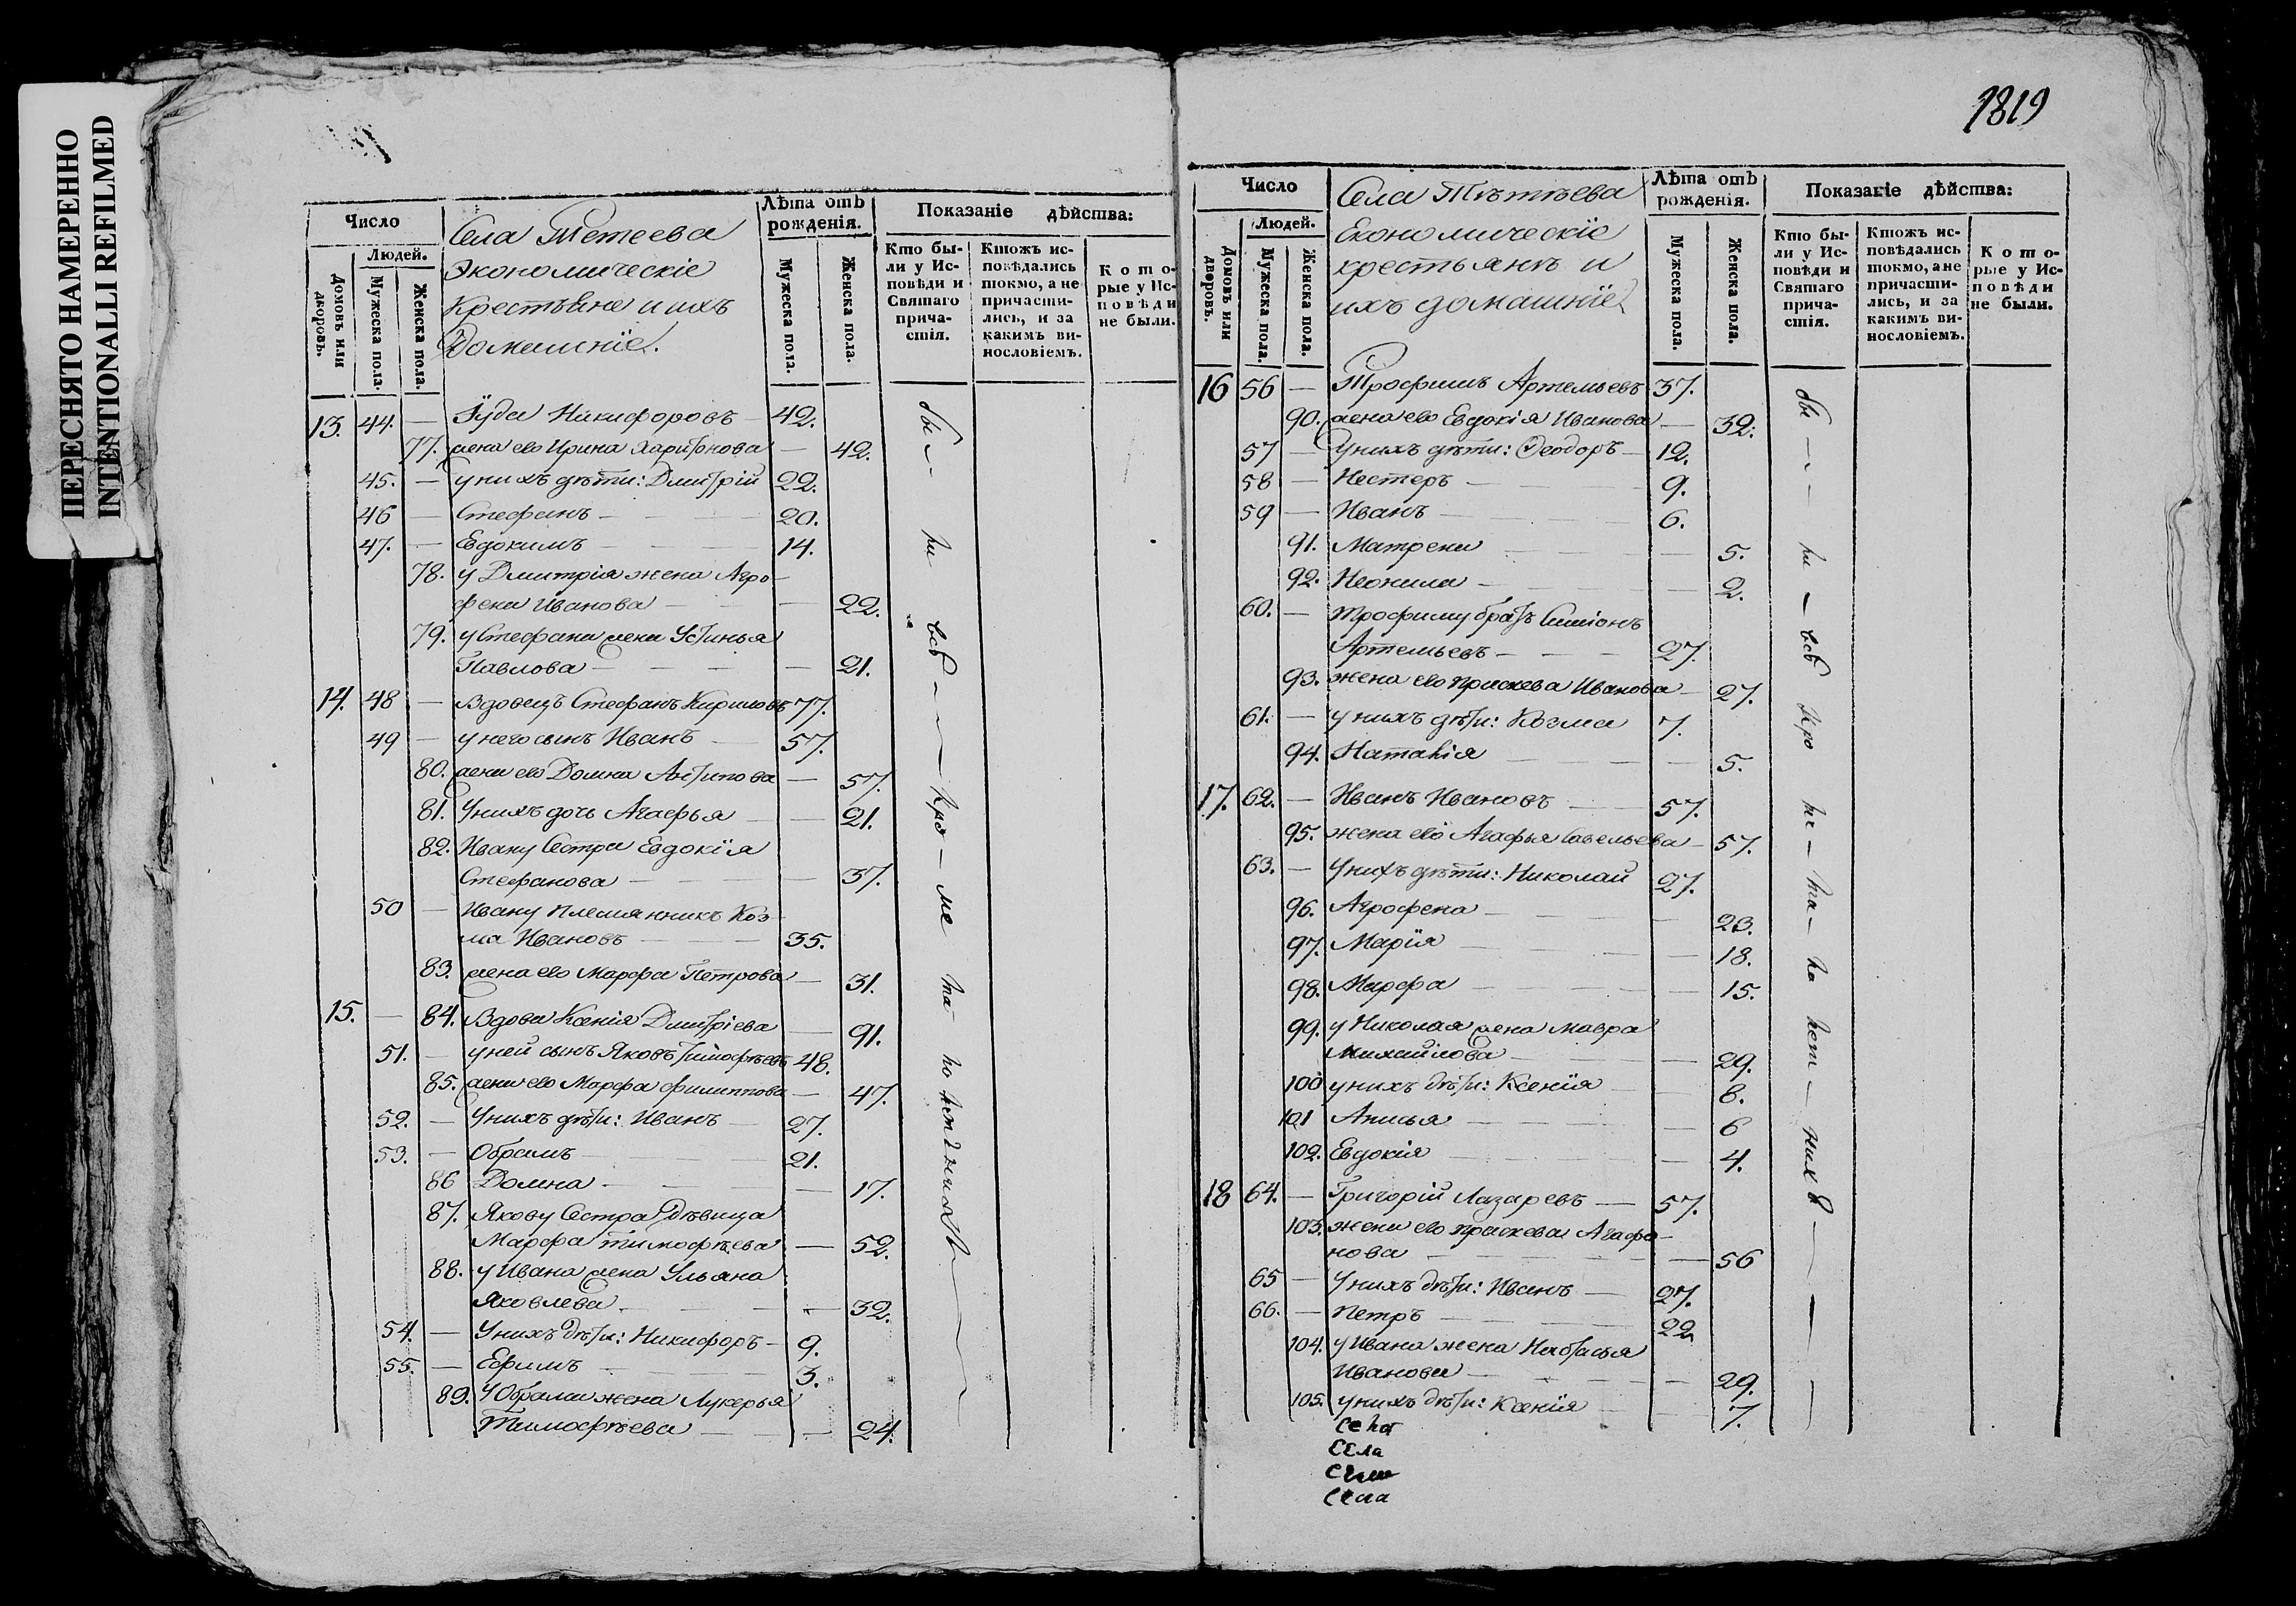 ПЕРЕСНЯТО НАМЕРЕННО
INTENTIONALLI REFILMED
Число
Людей.
Домовъ или дворовъ.
Мужеска пола.
Женска пола.
Села Тетеева
Экономическіе
Крестьяне и ихъ
Домашніе.
Лѣта отъ рожденія.
Мужеска пола.
Женска пола.
Показаніе дѣйства:
Кто были у Исповѣди и Святаго причастія.
Ктожъ исповѣдались токмо, а не причастились, и за какимъ винословіемъ.
Которые у Исповѣди не были.
13. 44. — Іуда Никифоровъ — 42.
77. жена его Ирина Харитонова — 42.
45. — у нихъ дѣти: Дмитрій 22.
46 — Стефанъ — 20.
47. — Евдокимъ — 14.
78. у Дмитрія жена Агро-
фена Иванова — 22.
79. у Стефана жена Устинья
Павлова — 21.
14. 48 — Вдовецъ Стефанъ Кириловъ 77.
49 — у него сынъ Иванъ 57.
80. жена его Домна Антипова — 57.
81. У нихъ дочь Агафья — 21.
82. Ивану Сестра Евдокія
Стефанова — 37.
50 — Ивану племянникъ Коз-
ма Ивановъ — 35.
83. жена его Марфа Петрова — 31.
15. — 84. Вдова Ксенія Дмитріева — 91.
51. — у ней сынъ Яковъ Тимофѣевъ 48.
85. жена его Марфа Филиппова — 47.
52. — У нихъ дѣти: Иванъ 27.
53. — Обрамъ 21.
86 Домна — 17.
87. Якову Сестра Дѣвица
Марфа Тимофѣева — 52.
88. у Ивана жена Ульяна
Яковлева — 32.
54. — У нихъ дѣти: Никифоръ — 9.
55. — Ефимъ 3.
89. У Обрама жена Лукерья
Тимофѣева — 24.
бы — ли всѣ — кро — ме
1819
Число
Людей.
Домовъ или дворовъ.
Мужеска пола.
Женска пола.
Села Тѣтѣева
Економическіе
крестьянѣ и
ихъ домашніе
Лѣта отъ рожденія.
Мужеска пола.
Женска пола.
Показаніе дѣйства:
Кто были у Исповѣди и Святаго причастія.
Ктожъ исповѣдались токмо, а не причастились, и за какимъ винословіемъ.
Которые у Исповѣди не были.
16 56 — Трофимъ Артемьевъ 37.
90. жена его Евдокія Иванова — 32.
57 — У нихъ дѣти: Ѳеодоръ — 12.
58 — Нестеръ — 9.
59 — Иванъ — 6.
91. Матрена — 5.
92. Неонила — 2.
60. — Трофиму братъ Симіонъ
Артемьевъ — 27.
93. жена его Праскева Иванова — 27.
61. — у нихъ дѣти: Козма 7.
94. Наталія — 5.
17. 62. — Иванъ Ивановъ — 57.
95. жена его Агафья Савельева — 57.
63. — У нихъ дѣти: Николай 27.
96. Агрофена — 23.
97. Марія — 18.
98. Марфа — 15.
99. у Николая жена Мавра
Михайлова — 29.
100 у нихъ дѣти: Ксенія — 8.
101 Анисья — 6
102. Евдокія — 4.
18 64. — Григорій Лазаревъ — 57.
103. жена его Праскева Агафо-
нова — 56
65 — У нихъ дѣти: Иванъ — 27.
66. — Петръ — 22
104. у Ивана жена Настасья
Иванова — 29.
105. у нихъ дѣти: Ксенія — 7.
бы — ли — всѣ кро
села
села
села